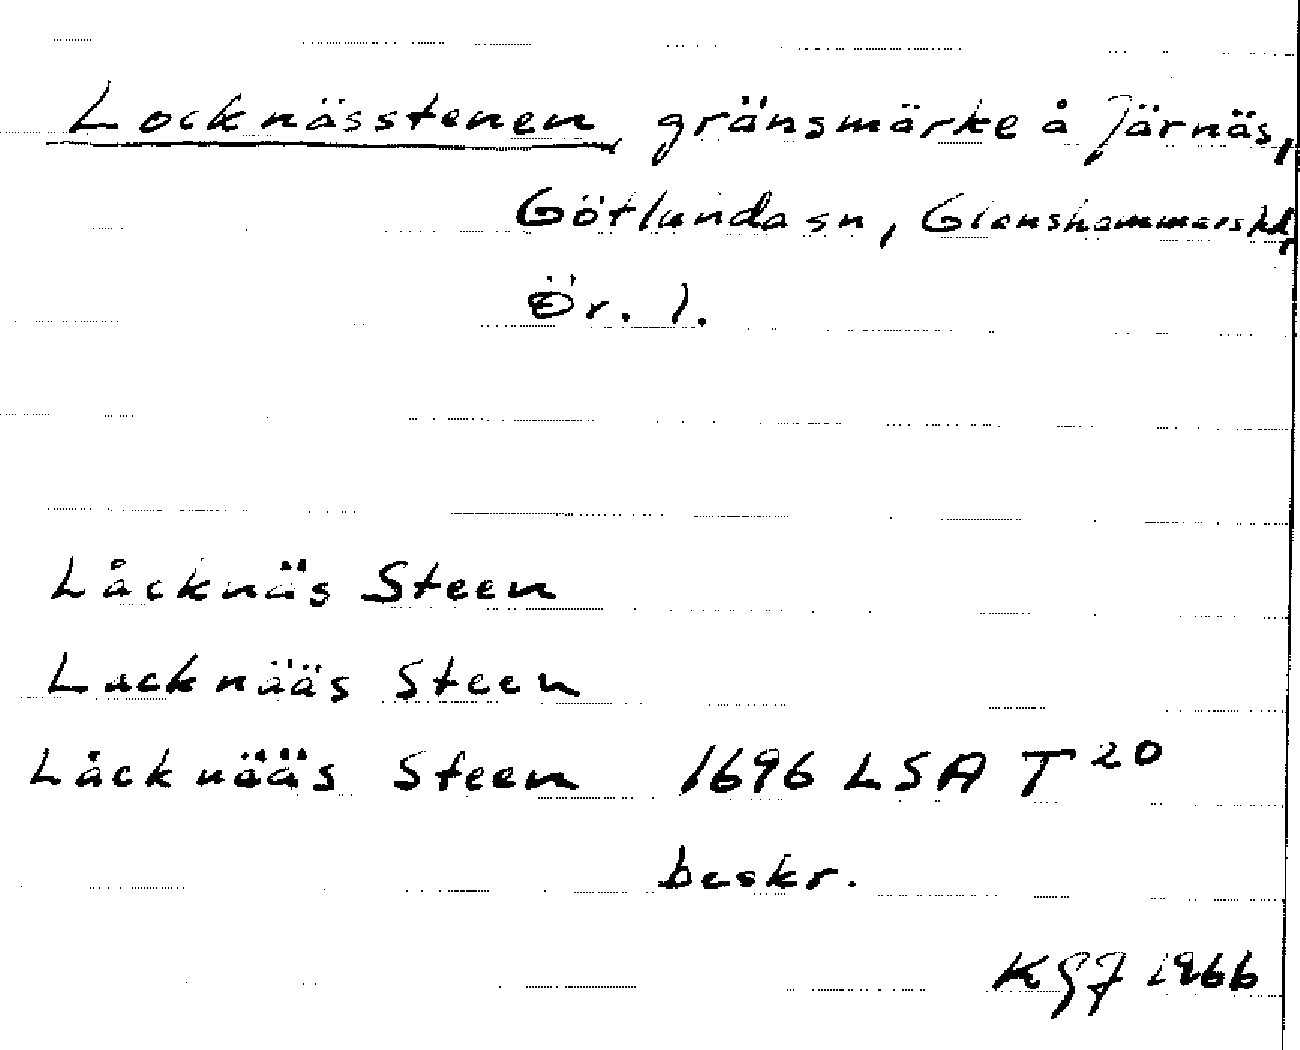 Locknässtenen, gränsmärke å Järnäs,
Götlunda sn, Glanshammars hd,
Ör. l.
Låcknäs Steen
Lacknääs Steen
Låcknääs Steen 1696 LSA T 20
beskr.
KGJ 1966